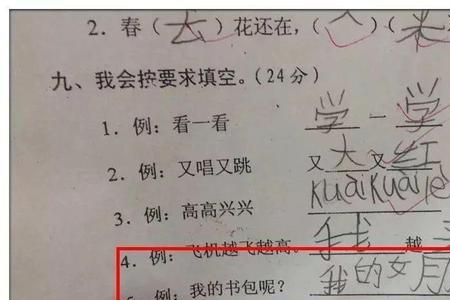 2. 春（去）花还在，（人）（来
九、我会按要求填空。（24分）
1. 例：看一看 学一学
2. 例：又唱又跳 又大又红
3. 例：高高兴兴 kuài kuài lè
4. 例：飞机越飞越高。 我 越
例：我的书包呢？ 我的女朋